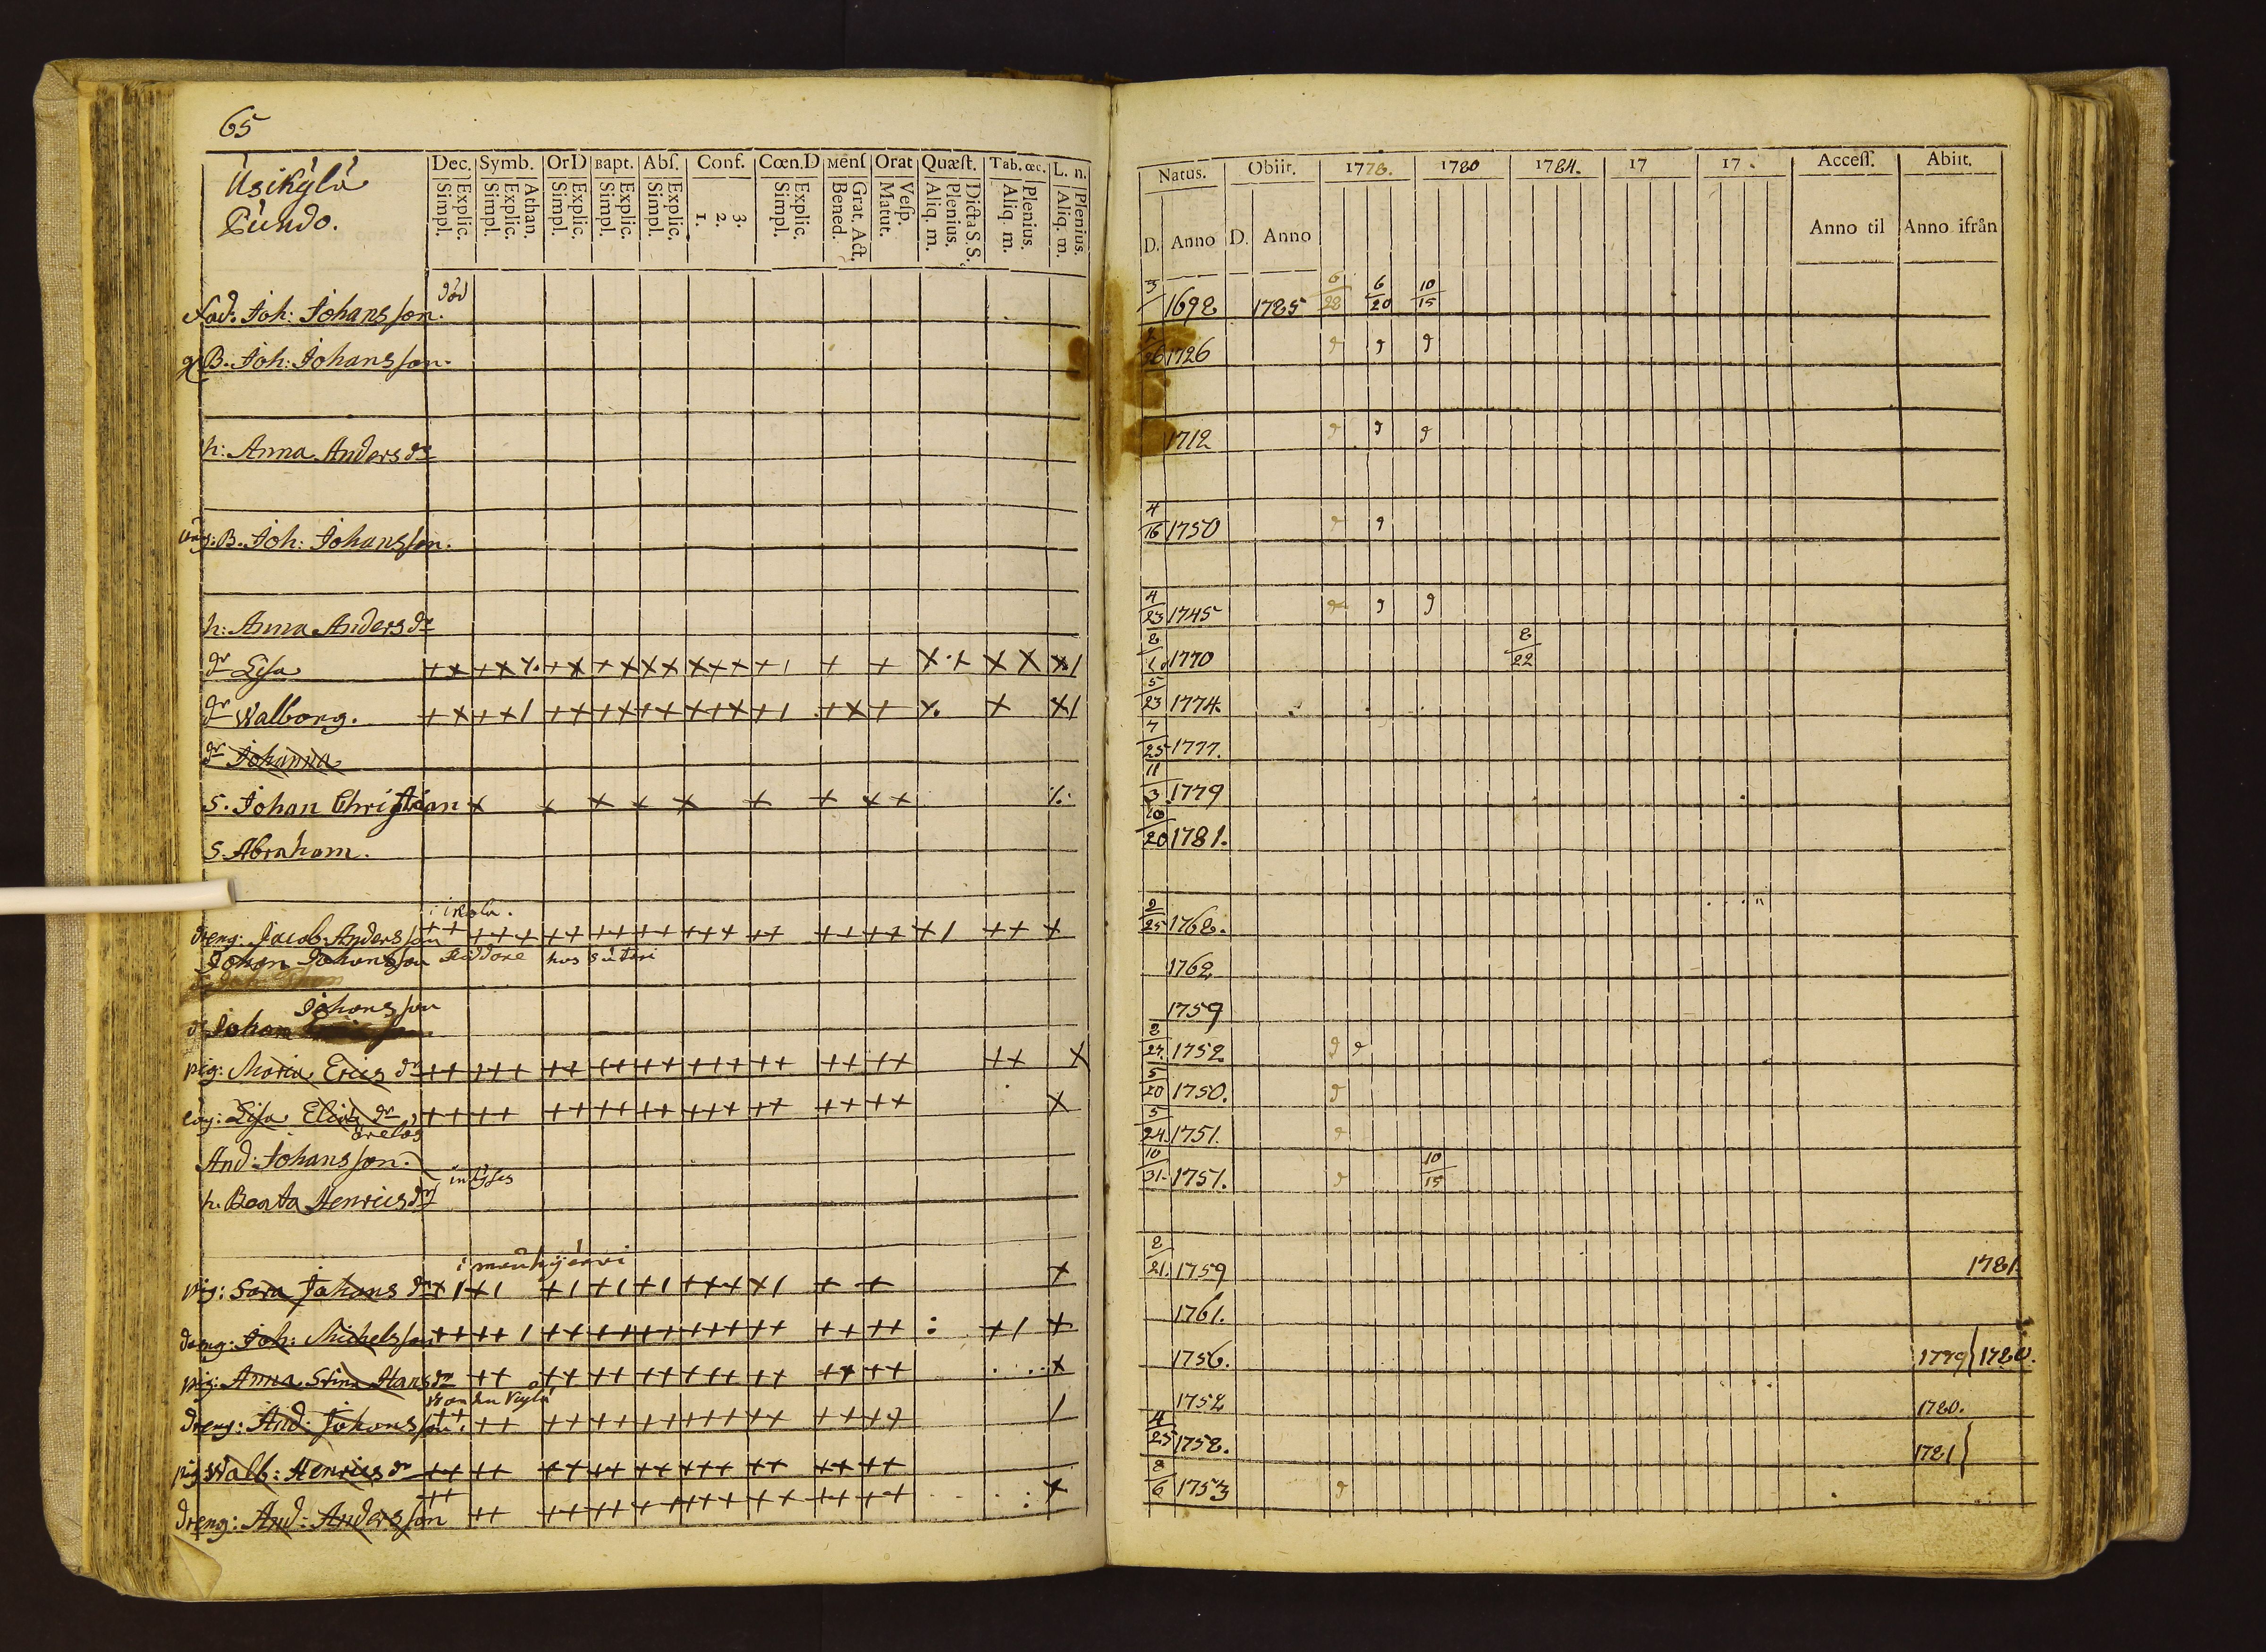 65
Usikylä
Pundo.
Dec. Symb. OrD Bapt. Abſ. Conf. Cœn.D Menſ Orat Quæſt. Tab. œc. L. n.
Explic. Simpl. Athan. Explic. Simpl. Explic. Simpl. Explic. Simpl. Explic. Simpl. 3. 2. 1. Explic. Simpl. Grat. Act. Bened. Veſp. Matut. Dicta S. S. Plenius. Aliq. m. Plenius. Aliq. m. Plenius. Aliq. m.
Natus. Obiit. 1778. 1780 1784. 17 17 . Acceſſ. Abiit.
D. Anno D. Anno Anno til Anno ifrån
död
Fad. Joh: Johansson. 3 1698 1785 6/28 6/20 10/15
B. Joh: Johansson. 2/26 1726
h: Anna Anders dr 1712
ung: B. Joh: Johansson. 4/16 1750
h: Anna Anders dr 4/23 1745
dr Lisa 8/1. 1770 8/22
dr Walborg. 5/23 1774.
dr Johanna 7/25 1777.
S. Johan Christian 11/3 1779
S. Abraham. 10/20 1781.
dreng: Jacob Andersson 2/25 1768.
Johan Johansson hos 1762
Johansson
Johan 1759
pig: Maria Erics dr 2/27. 1752
Lisa dr 5/20 1750.
And: Johansson. 5/24. 1751.
h. Beata Henrics dr 10/31. 1751. 10/15
pig: Sara Johans dr 2/21. 1759 1781
dreng: Joh: Michelsson 1761.
pig: Anna Stina Hans dr 1756. 1779 1780.
dreng: And: Johansson 1752 1780.
pig Walb: Henrics dr 4/25 1758. 1781
dreng: And: Andersson 8/6 1753